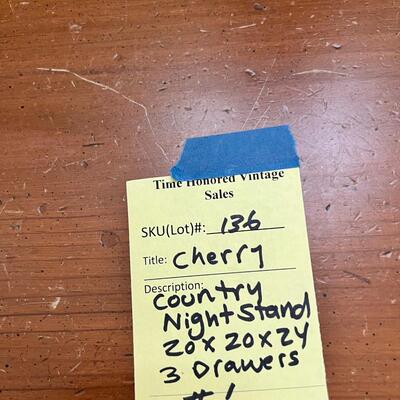 Time Honored Vintage
Sales
SKU(Lot)#: 136
Title: Cherry
Description: Country
Night Stand
20 x 20 x 24
3 Drawers
#1